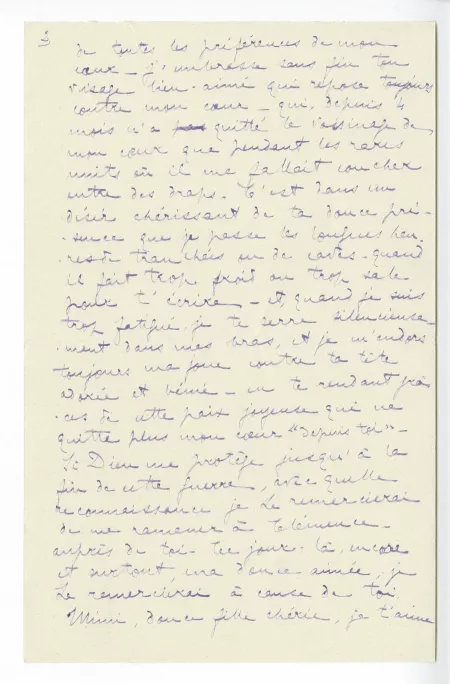 3
de toutes les préférences de mon
cœur – J'embrasse sans fin ton
visage bien-aimé qui repose toujours
contre mon cœur – qui, depuis 4
mois n'a pas quitté le voisinage de
mon cœur que pendant les rares
nuits où il me fallait coucher
entre des draps. C'est dans un
désir chérissant de ta douce pré-
-sence que je passe les longues heu-
-res de tranchées ou de cartes - quand
il fait trop froid ou trop sale
pour t'écrire – et quand je suis
trop fatigué, je te serre silencieuse
-ment dans mes bras, et je m'endors
toujours ma joue contre ta tête
adorée et bénie – en te rendant grâ
-ces de cette paix joyeuse qui ne
quitte plus mon cœur "depuis toi" –
Si Dieu me protège jusqu'à la
fin de cette guerre, avec quelle
reconnaissance je Le remercierai
de me ramener à Clémence –
auprès de toi - Ce jour-là, encore
et surtout, ma douce aimée, je
Le remercierai à cause de toi
Mimi, douce fille chérie, je t'aime